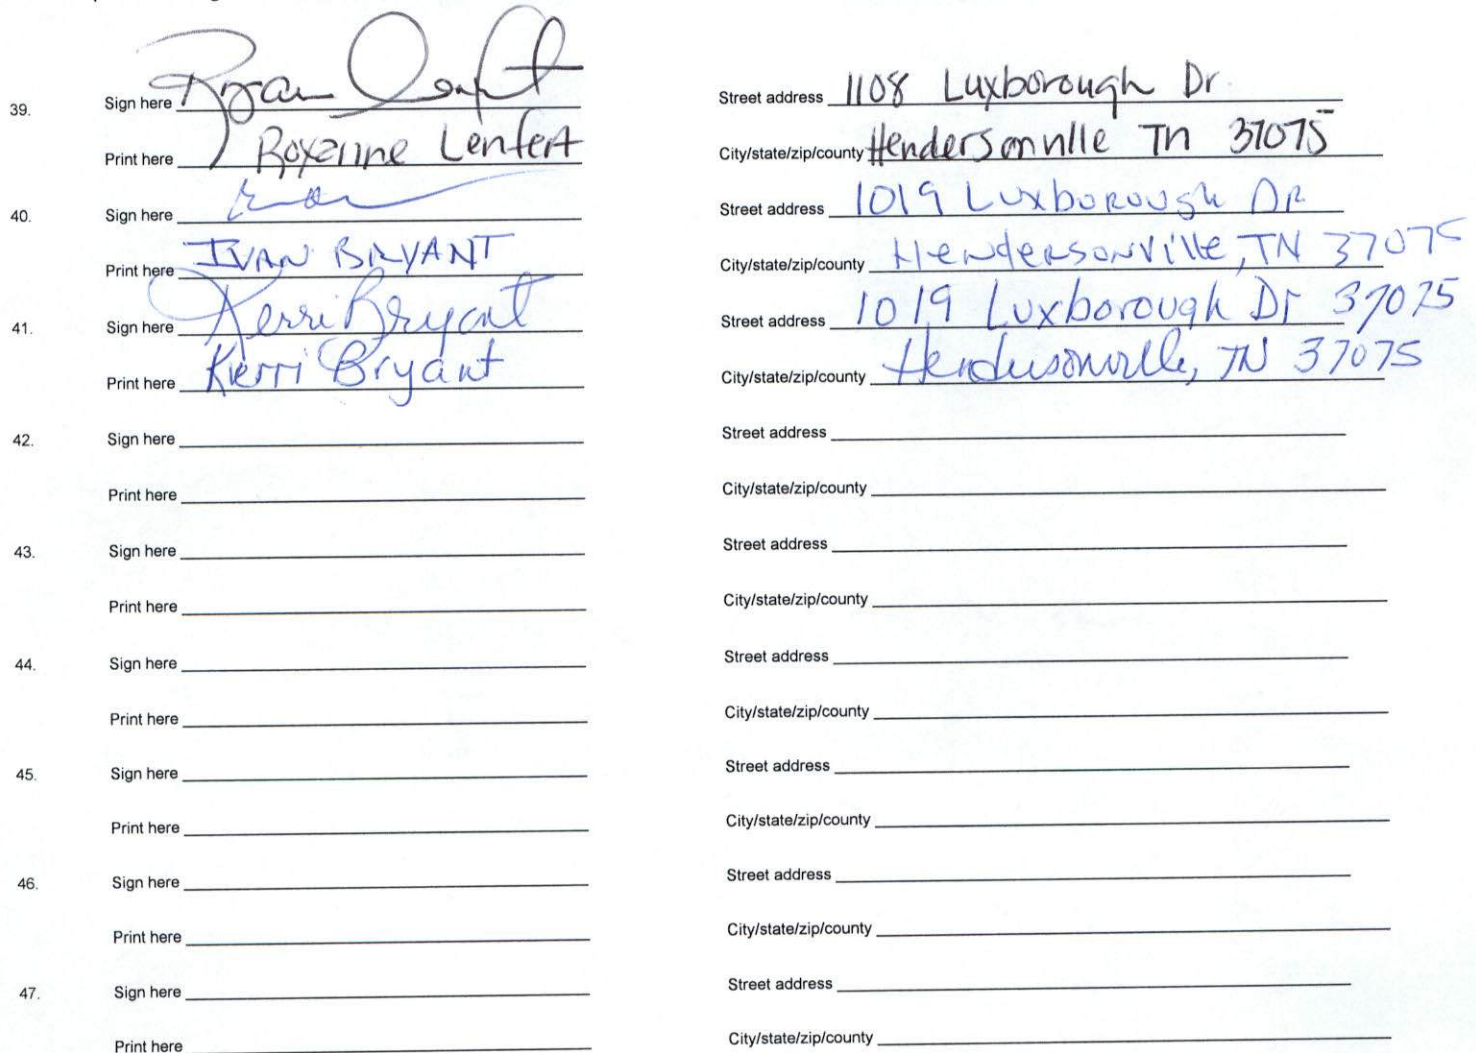 39. Sign here Street address 1108 Luxborough Dr.
Print here Roxanne Lenfert City/state/zip/county Hendersonville TN 37075
40. Sign here Street address 1019 Luxborough DR
Print here IVAN BRYANT City/state/zip/county Hendersonville, TN 37075
41. Sign here Kerri Bryant Street address 1019 Luxborough Dr 37075
Print here Kerri Bryant City/state/zip/county Hendersonville, TN 37075
42. Sign here Street address
Print here City/state/zip/county
43. Sign here Street address
Print here City/state/zip/county
44. Sign here Street address
Print here City/state/zip/county
45. Sign here Street address
Print here City/state/zip/county
46. Sign here Street address
Print here City/state/zip/county
47. Sign here Street address
Print here City/state/zip/county